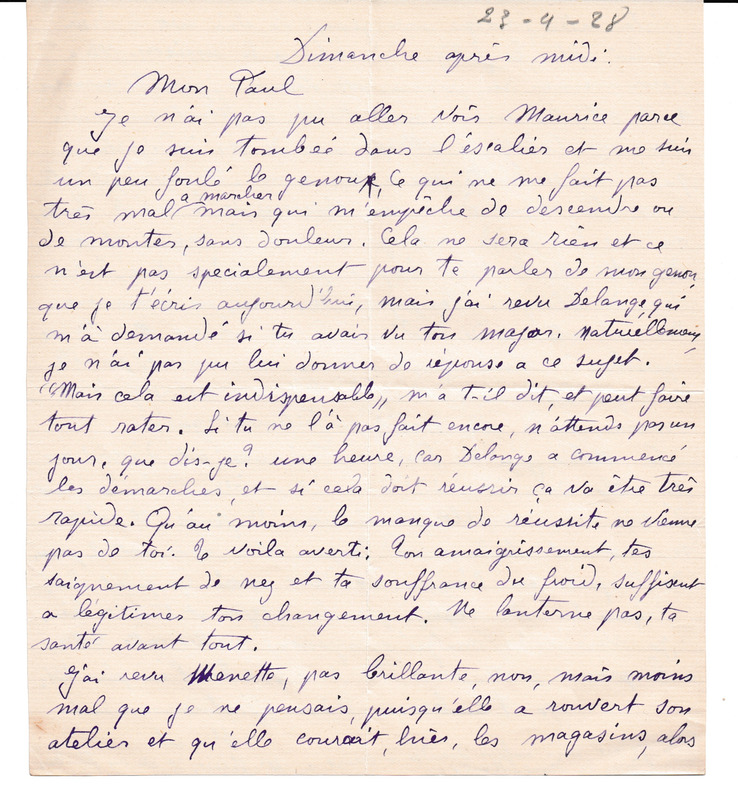 23-4-28
Dimanche après midi.
Mon Paul
Je n'ai pas pu aller voir Maurice parce
que je suis tombée dans l'éscalier et me suis
un peu foulé le genou, Ce qui ne me fait pas
a marcher
très mal mais qui m'empêche de descendre ou
de monter, sans douleur. Cela ne sera rien et ce
n'est pas specialement pour te parler de mon genou,
que je t'écris aujourd'hui, mais j'ai revu Delange, qui
m'à demandé si tu avais vu ton major. naturellement,
je n'ai pas pu lui donner de réponse a ce sujet.
"Mais cela est indispensable,, m'a t-il dit, et peut faire
tout rater. Si tu ne l'à pas fait encore, n'attends pas un
jour, que dis-je? une heure, car Delange a commencé
les démarches, et si cela doit réussir ça va être très
rapide. Qu'au moins, le manque de réussite ne vienne
pas de toi. Te voila averti; Ton amaigrissement, tes
saignement de nez et ta souffrance du froid, suffisent
a légitimer ton changement. Ne lanterne pas, ta
santé avant tout.
J'ai revu Manette, pas brillante, non, mais moins
mal que je ne pensais, puisqu'elle a rouvert son
atelier et qu'elle courait, hier, les magasins, alors